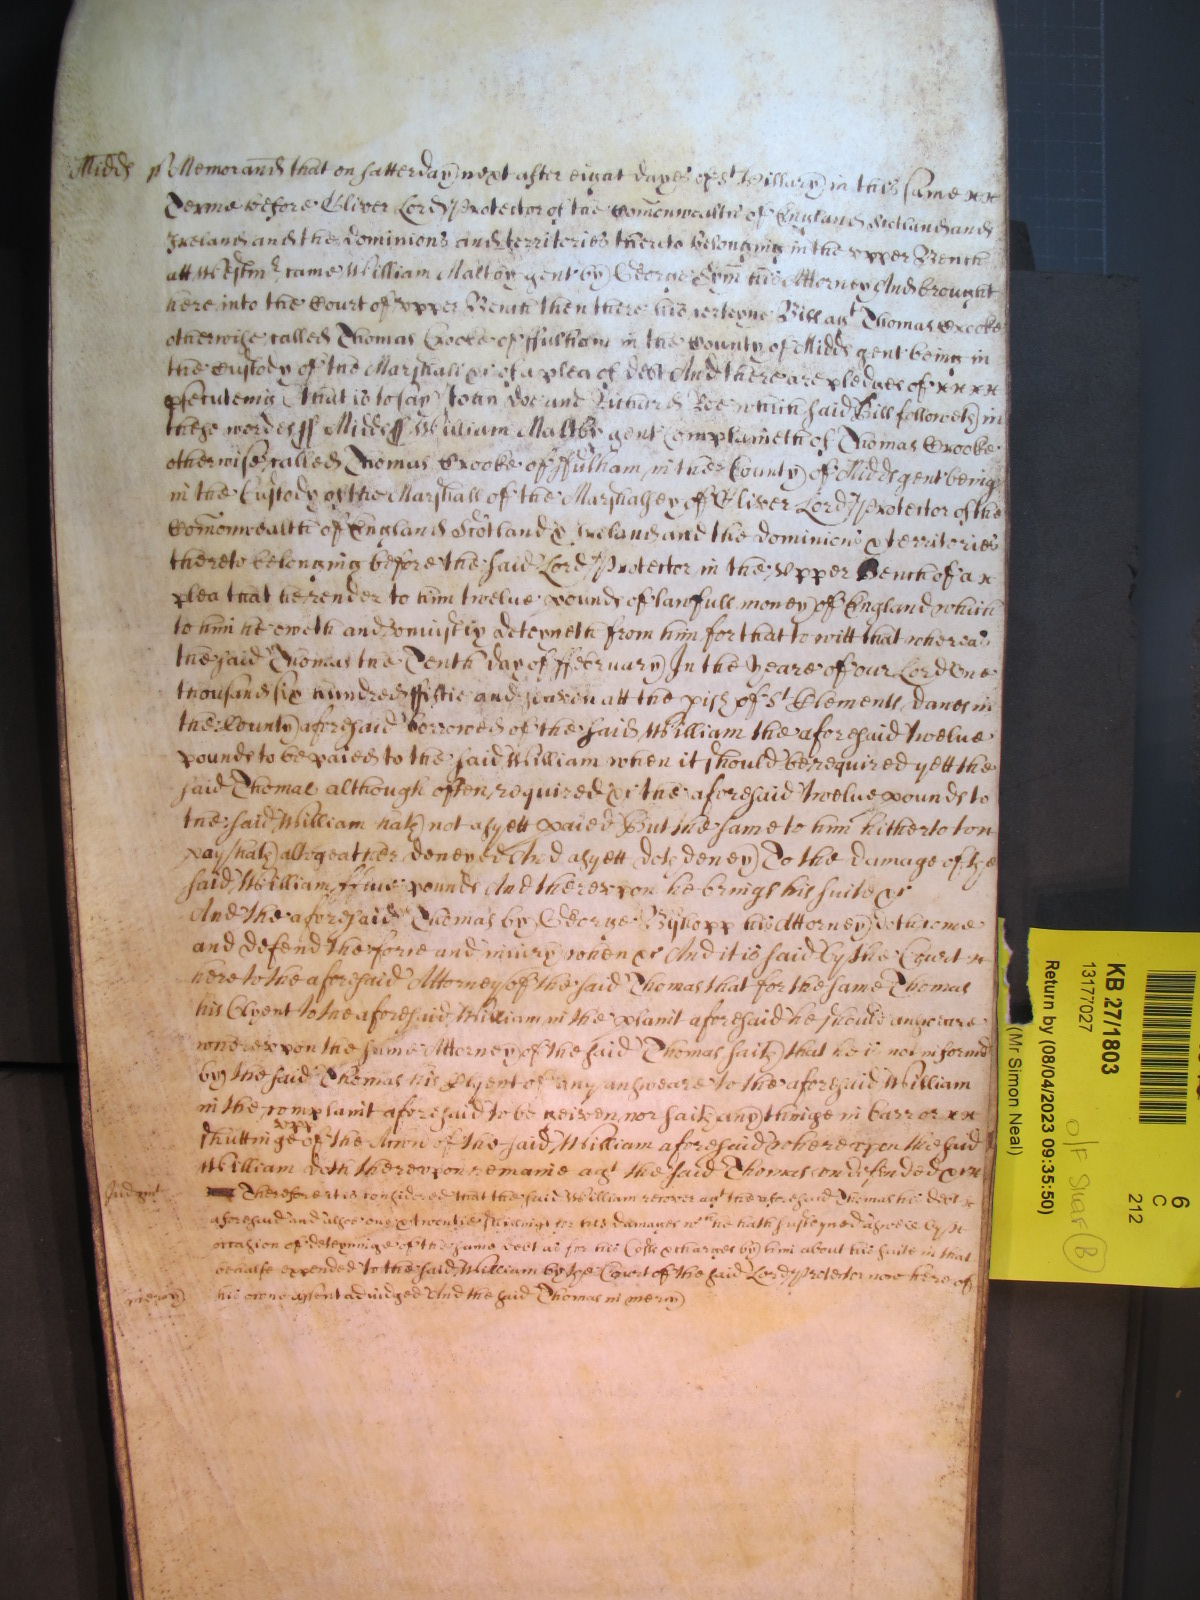 Midds ss Memorand that on Satterday next after eight dayes of St Hillary in this same xx
Terme before Oliver Lord Protector of the Comonwealth of England Scotland and
Ireland and the dominions and territories thereto belonging in the upper Bench
att Westmr came William Maltby gent by George Sym his Attorney And brought
here into the Court of upper Bench then there his certeyne Bill agt Thomas Crooke
otherwise called Thomas Crooke of ffulham in the County of Midds gent being in
the Custody of the Marshall &c of a plea of debt And there are pledges of xxxx
psecuteing That is to say John Doe and Richard Roe which said Bill followeth in
these wordes ss Midds ss William Maltby gent Complaineth of Thomas Crooke
otherwise called Thomas Crooke of ffulham in the County of Midds gent being
in the Custody of the Marshall of the Marshalsey of Oliver Lord Protector of the
Comonwealth of England Scotland & Ireland and the dominions & territories
thereto belonging before the said Lord Protector in the Upper Bench of a x
plea that he render to him twelve pounds of lawfull money of England which
to him he oweth and uniustly deteyneth from him for that to witt that whereas
the said Thomas the Tenth day of ffebruary In the yeare of our Lord One
thousand six hundred ffiftie and seaven att the pish of St Clements danes in
the County aforesaid borrowed of the said William the aforesaid twelve
pounds to be paied to the said William when it should be required yett the
said Thomas although often required &c the aforesaid twelve pounds to
the said William hath not as yett paied But the same to him hitherto to x
pay hath altogeather denyed And as yett doth deney To the damage of the
said William ffive pounds And thereupon he brings his suite &c
And the aforesaid Thomas by George Byshopp his Attorney doth come
and defend the force and iniury when &c And it is said by the Court x
here to the aforesaid Attorney of the said Thomas that for the same Thomas
his Clyent to the aforesaid William in the plaint aforesaid he should answeare
whereupon the same Attorney of the said Thomas saith that he is not informed
by the said Thomas his Clyent of any answeare to the aforesaid William
in the complaint aforesaid to be geiven nor saith any thinge in barr or xx
shuttinge upp of the Accon of the said William aforesaid whereupon the said
William doth thereupon remaine agt the said Thomas undefended &c x
Judgmt Therefore it is considered that the said William recover agt the aforesaid Thomas his debt x
aforesaid and alsoe one & twentie shillings for his damages wch he hath susteyned aswell by x
occasion of deteyninge of the same debt as for his Costs & charges by him about his suite in that
behalfe expended to the said William by the Court of the said Lord Protector now here of
mercy his owne assent adiudged And the said Thomas in mercy
KB 27/1803
13177027
Return by (08/04/2023 09:35:50)
(Mr Simon Neal)
6
C
212
O/F Shar (B)